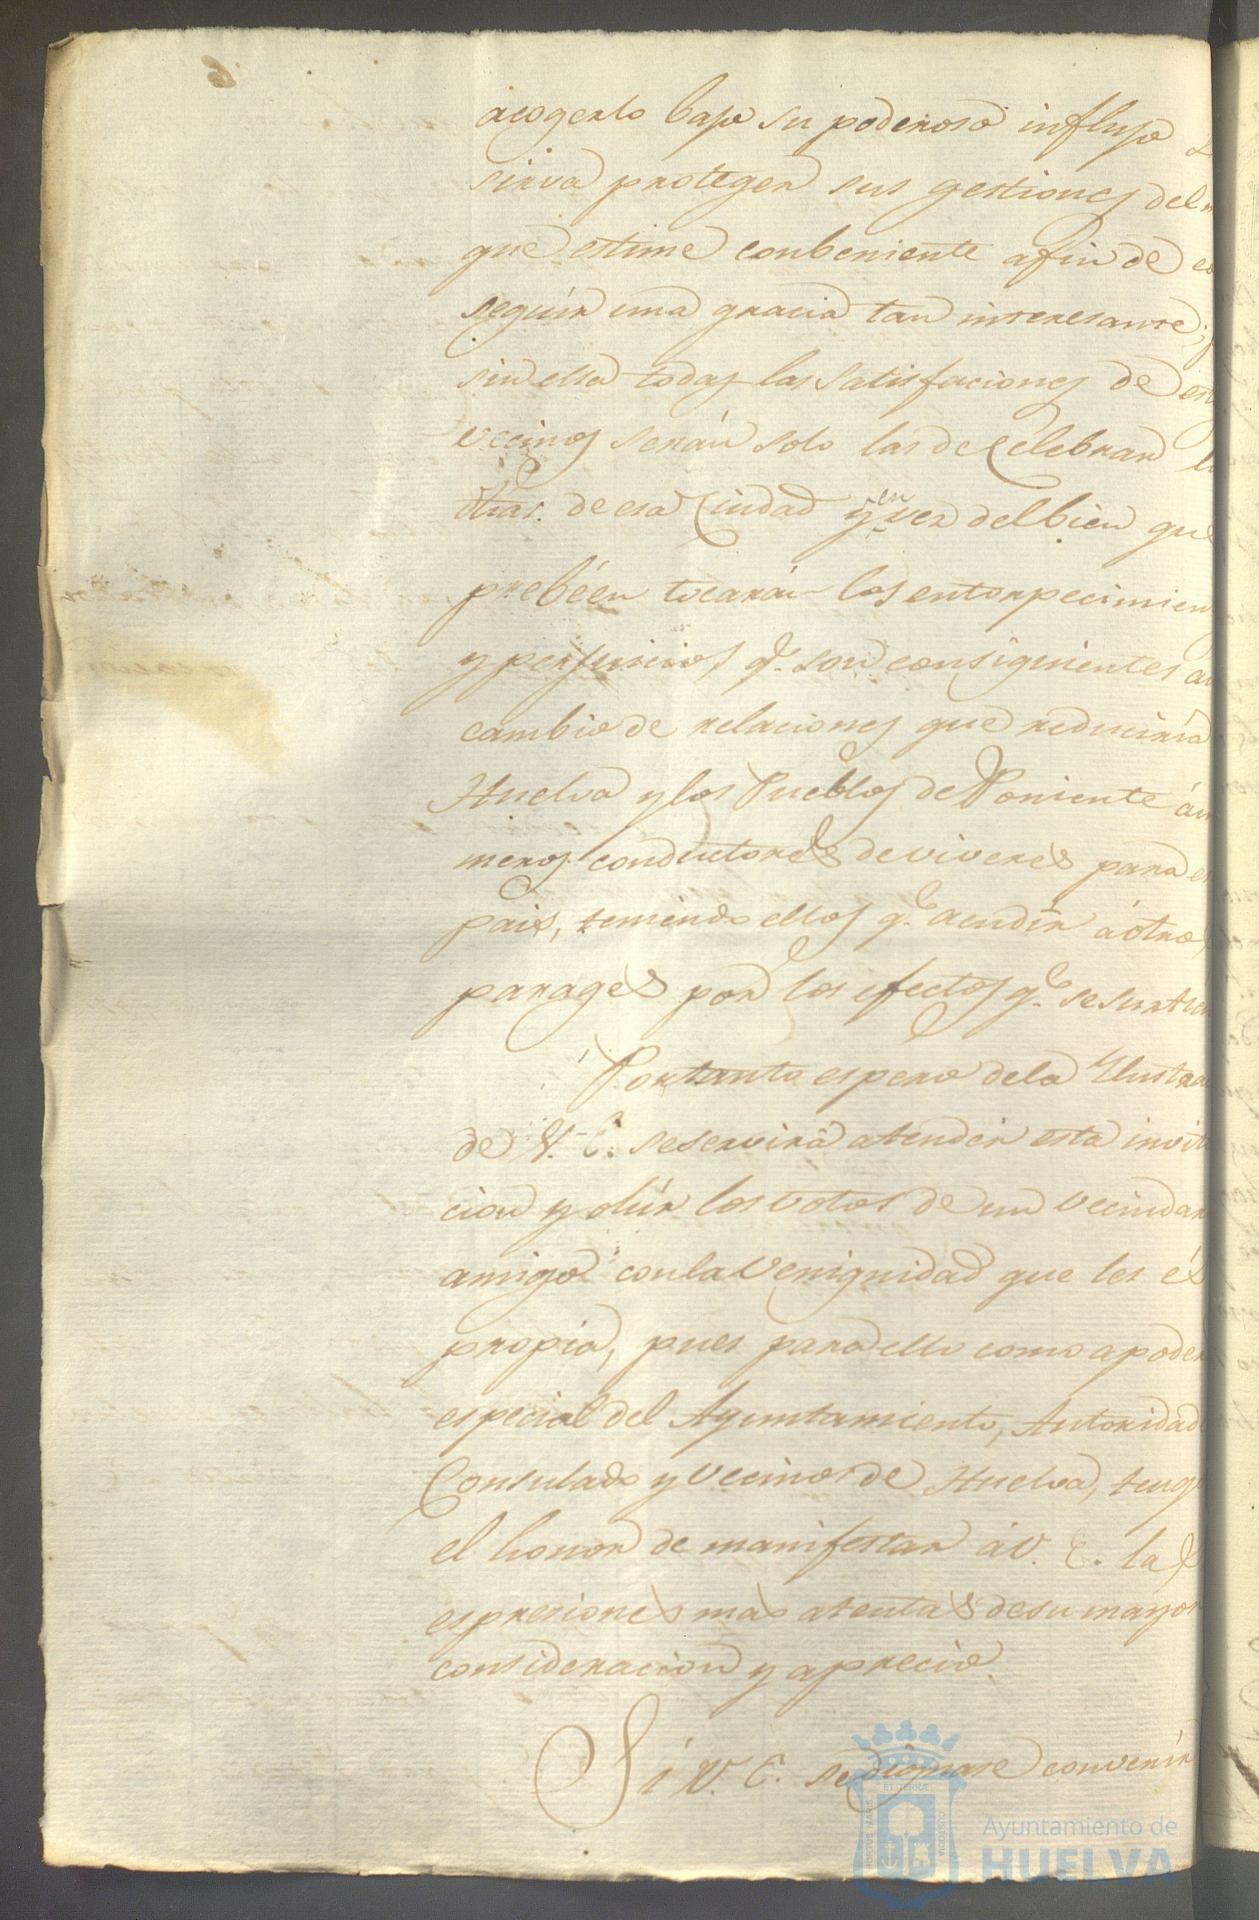 acogerlo bajo su poderoso influjo
sirva proteger sus gestiones del m
que estime conbeniente afin de co
seguir una gracia tan interesante;
sin ella todas las Satisfaciones de est
vecinos serán solo las de Celebrar l
dhas. de esa Ciudad y en vez del bien que
prebéen tocarán los entorpecimien
y perjuicios q.e son consiguientes a
cambio de relaciones que reduciria
Huelva y los Pueblos de Poniente á u
meros conductores de viveres para e
pais, teniendo ellos q.e acudir á otro
parages por los efectos q.e se surten
Portanto espero dela Ylustra
de V. E. se servirá atender esta invit
cion y oir los votos de un Vecindar
amigo con la Venignidad que les és
propia, pues para ello como apoder
especial del Ayuntamiento, Autoridad
Consulado y Vecinos de Huelva, teng
el honor de manifestar á V. E. las
espresiones mas atentas de su mayor
consideracion y aprecio.
Si V. E. se dignase convenir
Ayuntamiento de
HUELVA